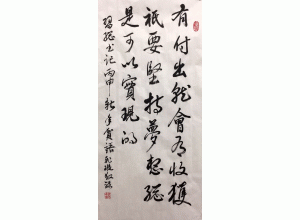 有付出就會有收獲
衹要堅持夢想總
是可以實現的
習總書記丙申新年賀語